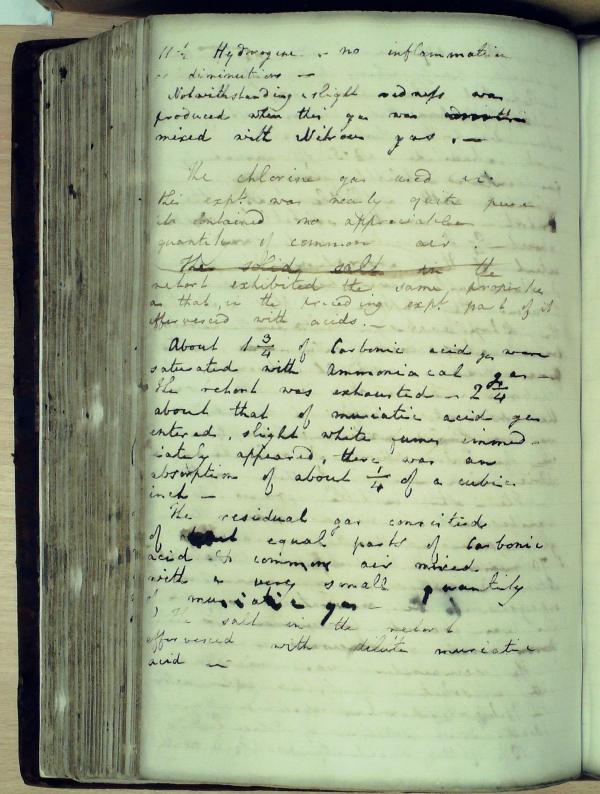 11 ½ Hydrogene - no inflammation
or diminution —
Notwithstanding slight redness was
produced when this gas was
mixed with Nitrous gas . —
The chlorine gas used in
this expt. was nearly quite pure
it contained no appreciable
quantity of common air .
The solid salt in the
retort exhibited the same properties
as that in the preceding expt. part of it
effervesced with acids. —
About 1 3/4 of Carbonic acid gas were
saturated with Ammoniacal gas —
The retort was exhausted - 2 3/4
about that of muriatic acid gas
entered, slight white fumes immed-
iately appeared, there was an
absorption of about 1/4 of a cubic
inch —
The residual gas consisted
of equal parts of Carbonic
acid & common air mixed
with a very small quantity
of muriatic gas —
The salt in the retort
effervesced with dilute muriatic
acid —